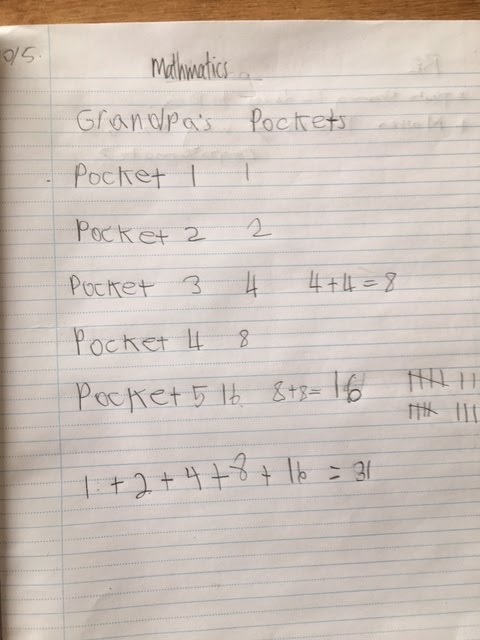 0/5.
Mathmatics
Grandpa's Pockets
Pocket 1 1
Pocket 2 2
Pocket 3 4 4+4=8
Pocket 4 8
Pocket 5 16 8+8= 16
1 + 2 + 4 + 8 + 16 = 31